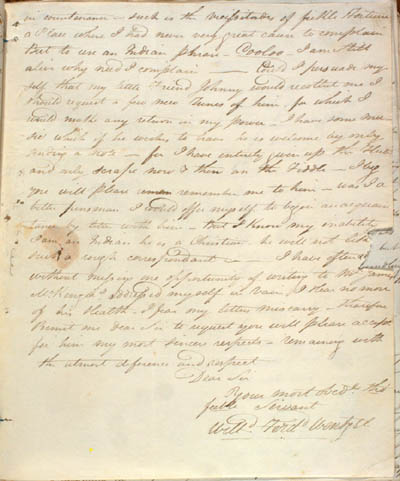 in countenance – such is the vicissitudes of fickle Fortune
a Place where I had never very great cause to complain
But to use an Indian phrase – Cooloo – I am still
alive why need I complain — Could I persuade my-
self that my little Friend Johnny would recollect me I
should request a few new tunes of him, for which I
would make any return in my power – I have some mu-
sic which if he wishes to have he is welcome by only
sending a note – for I have entirely given up the Flute
and only scrape now & then on the Fiddle – I beg
you will please remember me to him – was I a
better penman I would offer myself to begin an acquain-
tance by letter with him – but I know my inability
I am an Indian he is a Christian he will not like
such a rough correspondant — I have often
without missing one opportunity of writing to Mr
McKenzie addressed myself in vain, I hear no more
of his Health – I fear my letters miscarry – therefore
Permit me dear Sir to request you will please accept
for him my most sincere respects – remaining with
the utmost deference and respect
Dear Sir
Your most Obedt tho
feeble Servant
Willm Ferdd Wentzel